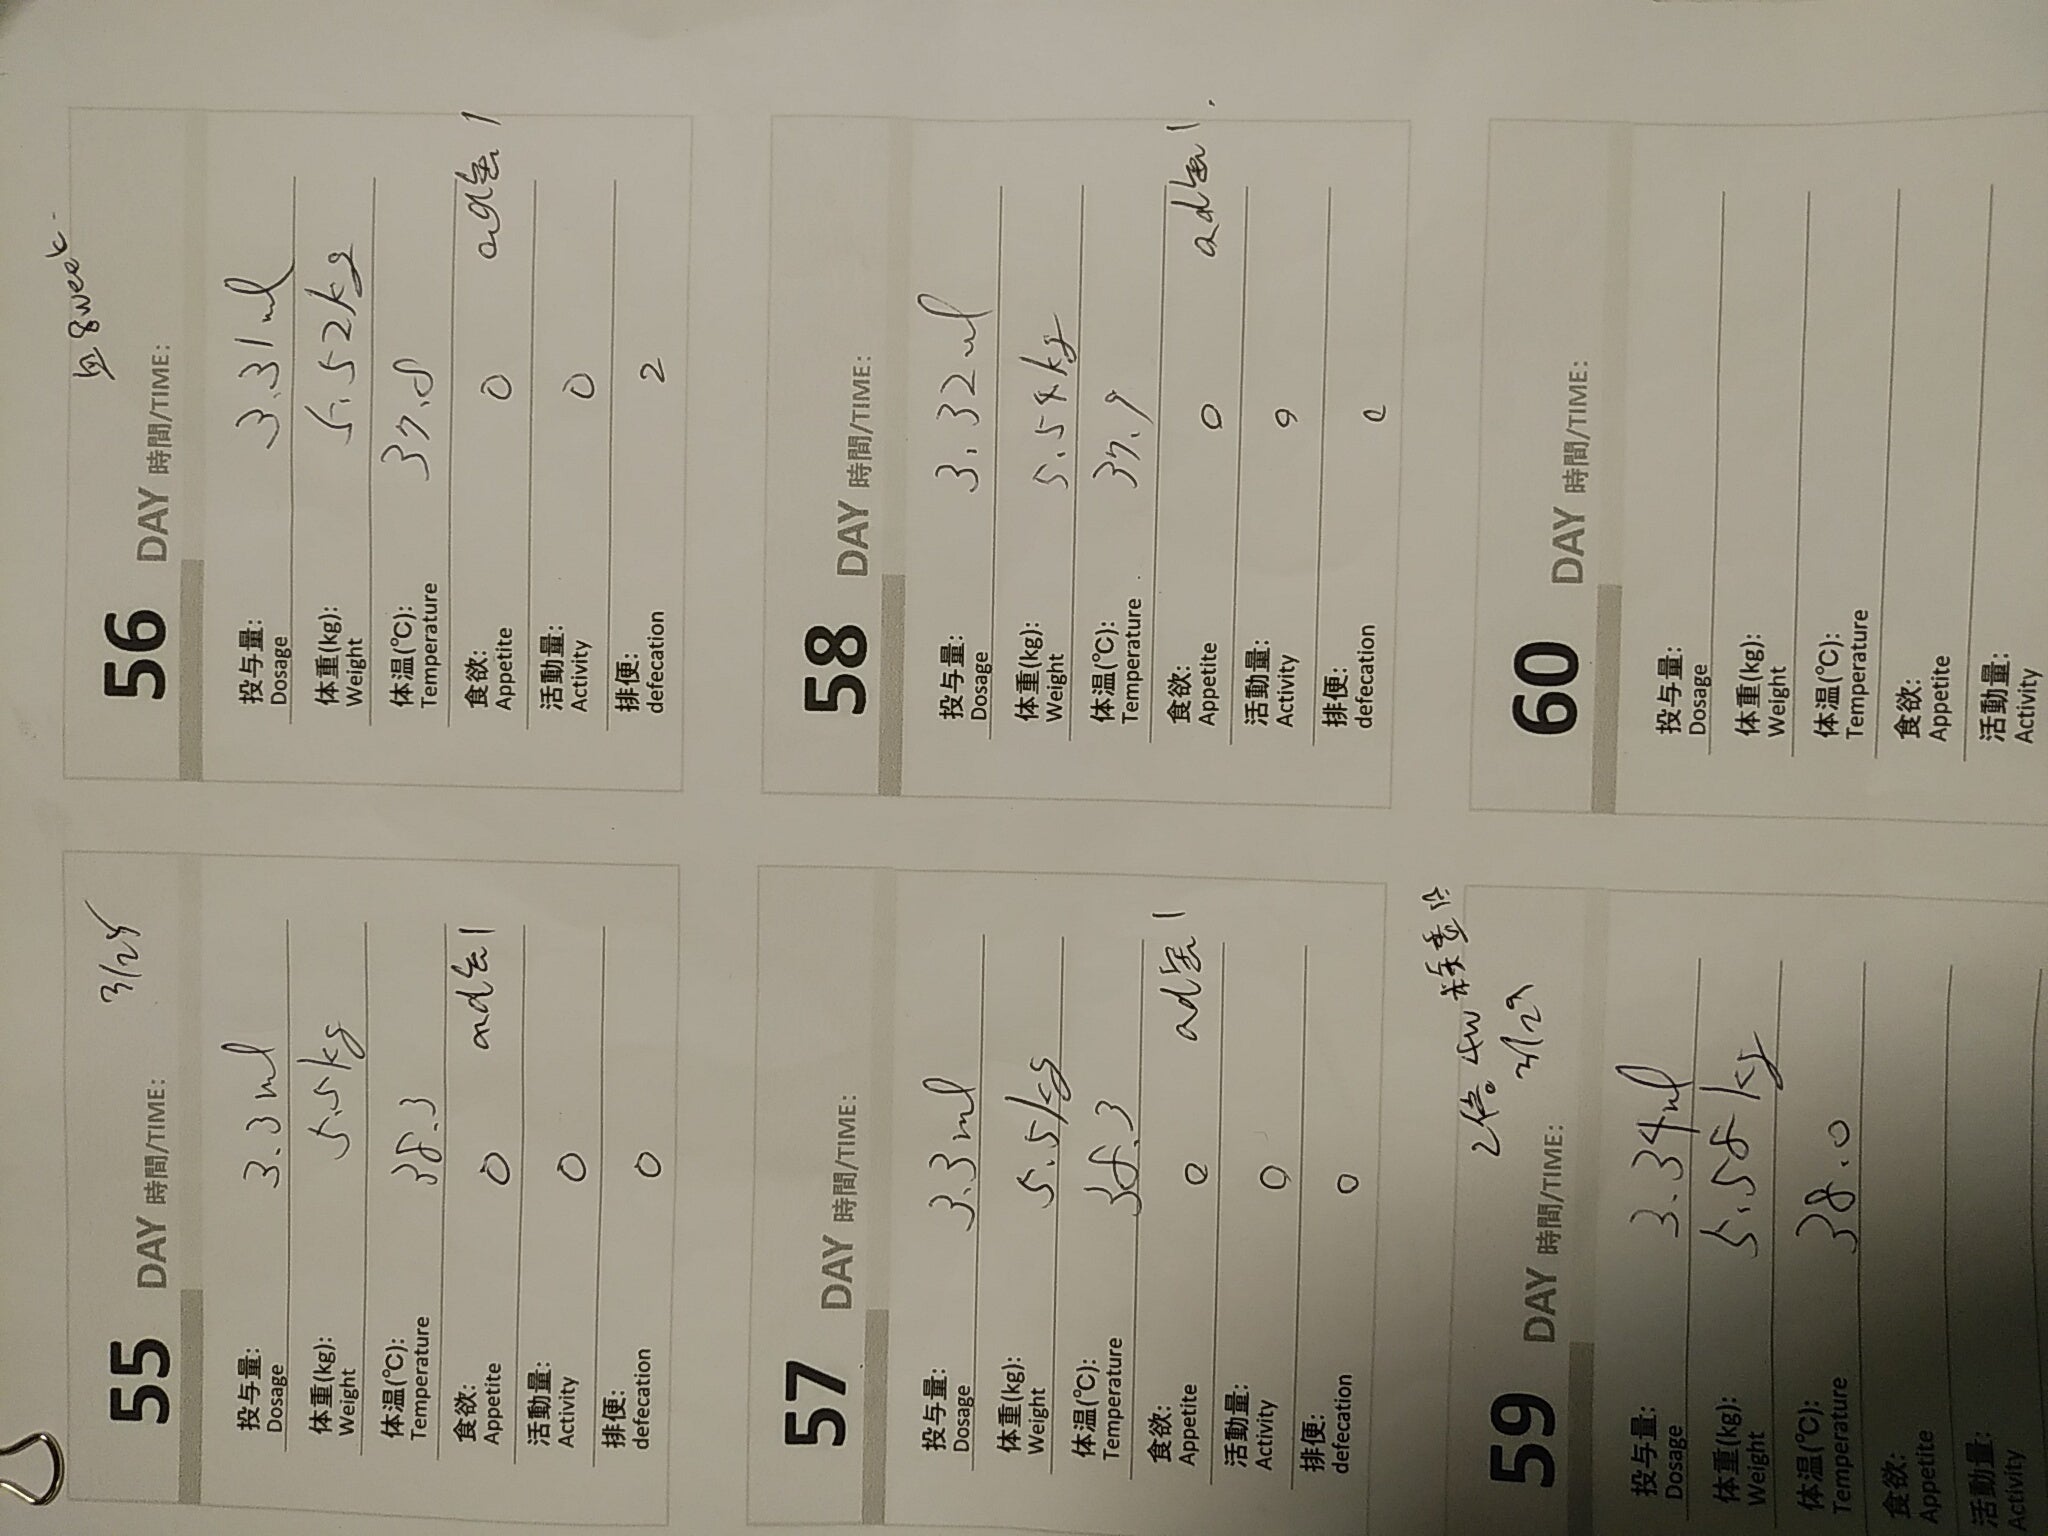 55 DAY 時間/TIME: 3/25
投与量: Dosage 3.3ml
体重(kg): Weight 5.5kg
体温(℃): Temperature 38.3
食欲: Appetite 0
活動量: Activity 0
排便: defecation 0
8week
56 DAY 時間/TIME:
投与量: Dosage 3.31ml
体重(kg): Weight 5.52kg
体温(℃): Temperature 37.8
食欲: Appetite 0
活動量: Activity 0
排便: defecation 2
57 DAY 時間/TIME:
投与量: Dosage 3.3ml
体重(kg): Weight 5.51kg
体温(℃): Temperature 38.3
食欲: Appetite 0
活動量: Activity 0
排便: defecation 0
58 DAY 時間/TIME:
投与量: Dosage 3.32ml
体重(kg): Weight 5.54kg
体温(℃): Temperature 37.9
食欲: Appetite 0
活動量: Activity 0
排便: defecation
4w
59 DAY 時間/TIME: 3/29
投与量: Dosage 3.34ml
体重(kg): Weight 5.58kg
体温(℃): Temperature 38.0
食欲: Appetite
活動量: Activity
60 DAY 時間/TIME:
投与量: Dosage
体重(kg): Weight
体温(℃): Temperature
食欲: Appetite
活動量: Activity